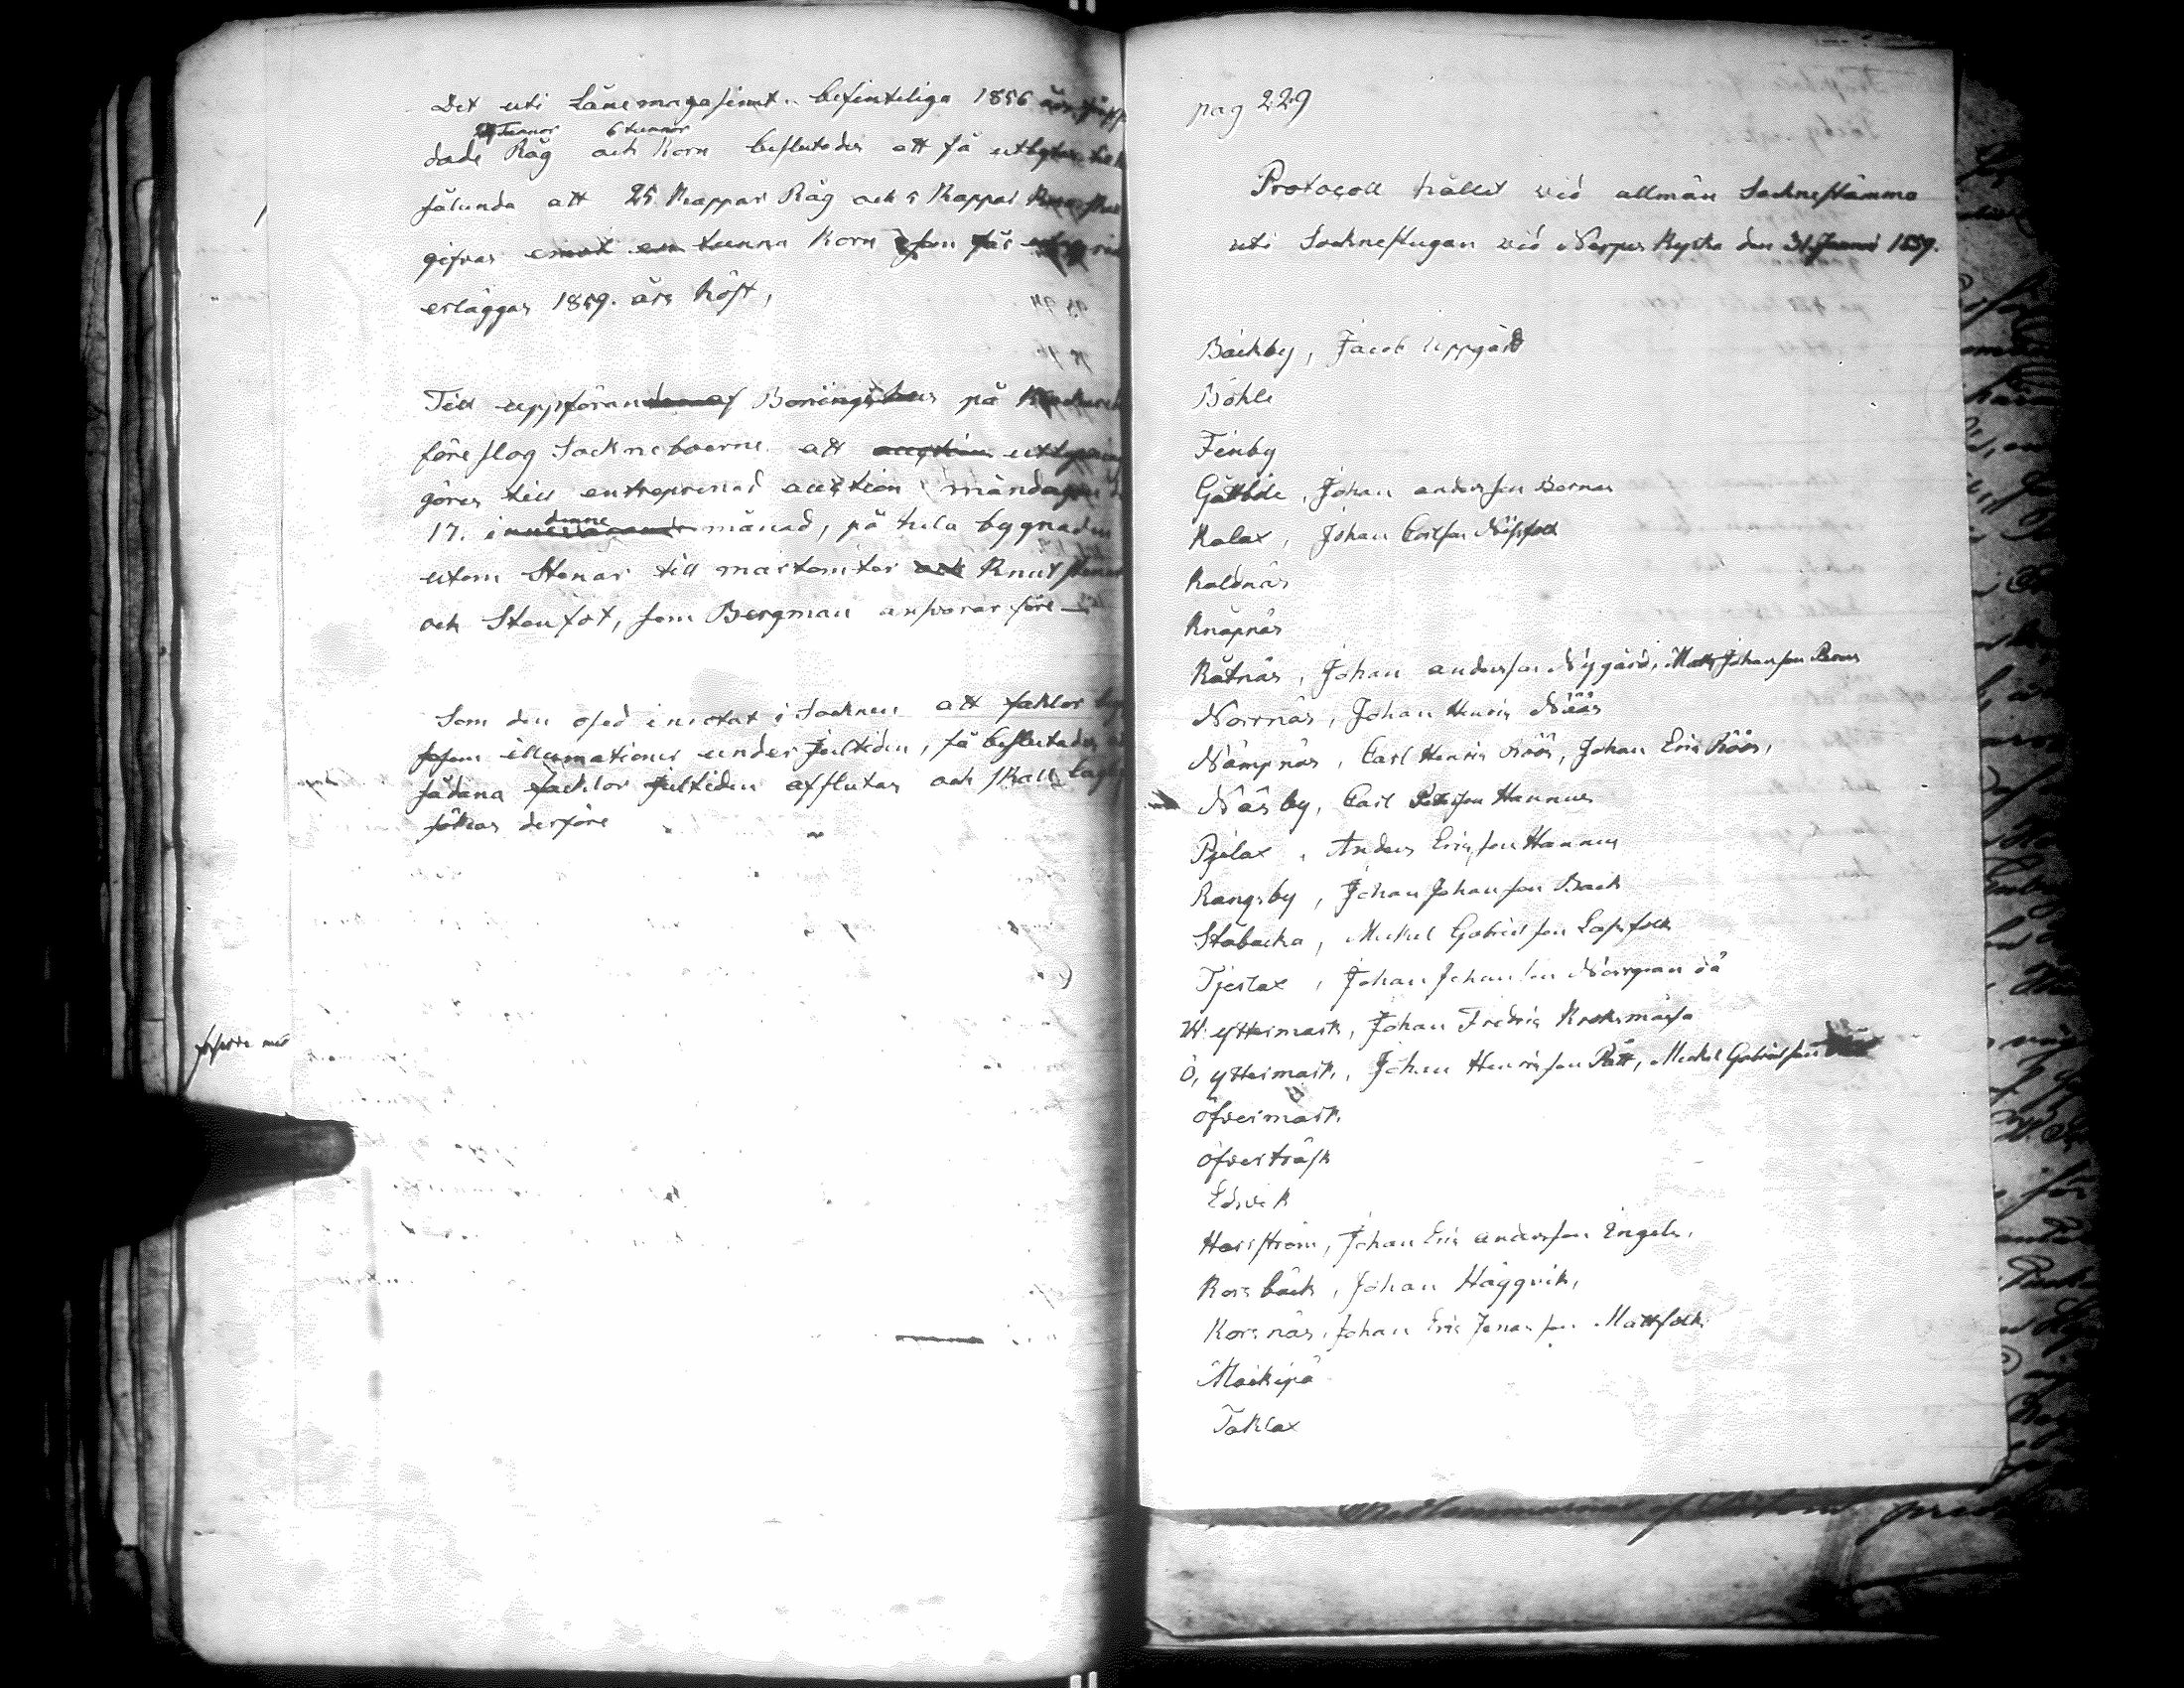 Det uti Lånemagasinet befinteliga 1856 års
24 Tunnor 6 tunnor
dade Råg och Korn beslutades att få utbytas
sålunda att 25 Kappar Råg och 5 Kappar
gifvas emot en tunna Korn som
erläggas 1859. års höst,
Till uppförandet af Boningshus på
föreslog Sockneboerne att auction
göres till entreprenad auction måndagen
denne
17. innevarande månad, på hela bygnaden
utom Stenar till murtomter och Knut stenar
och Stenfot, som Bergman ansvarar före
Som den osed inrotat i Socknen att facklor
såsom illumationer under Jultiden, så beslutades
sådana facklor Jultiden afslutas och skall
sökas derföre
pag 229
Protocoll hållet vid allmän Socknestämma
uti Socknestugan vid Nerpes Kyrka den 31 1859.
Bäckby, Jacob Uppgård
Böhle
Finby
Gåttböle, Johan andersson Bernas
Kalax, Johan Carlsson Nissfolk
Kaldnäs
Knåpnäs
Kåtnäs, Johan andersson Nygård, Matts Johansson
Norrnäs, Johan Henric Nääs
Nämpnäs, Carl Henric Röös, Johan Eric Röös,
Näsby, Carl Hannus
Pjelax, Anders Ericsson Hannus
Rangsby, Johan Johansson Back
Ståbacka, Mickel Gabrielsson Lassfolk
Tjerlax, Johan Johansson Norrgran då
W. yttermark, Johan Fredric Kroksmässa
Ö, yttermark, Johan Henricsson Rått, Mickel Gabrielsson
öfvermark
öfverträsk
Edsvik
Harrström, Johan Eric andersson Engels,
Korsbäck, Johan Häggvik,
Korsnäs, Johan Eric Jonasson Mattsfolk
Märkipä
Taklax